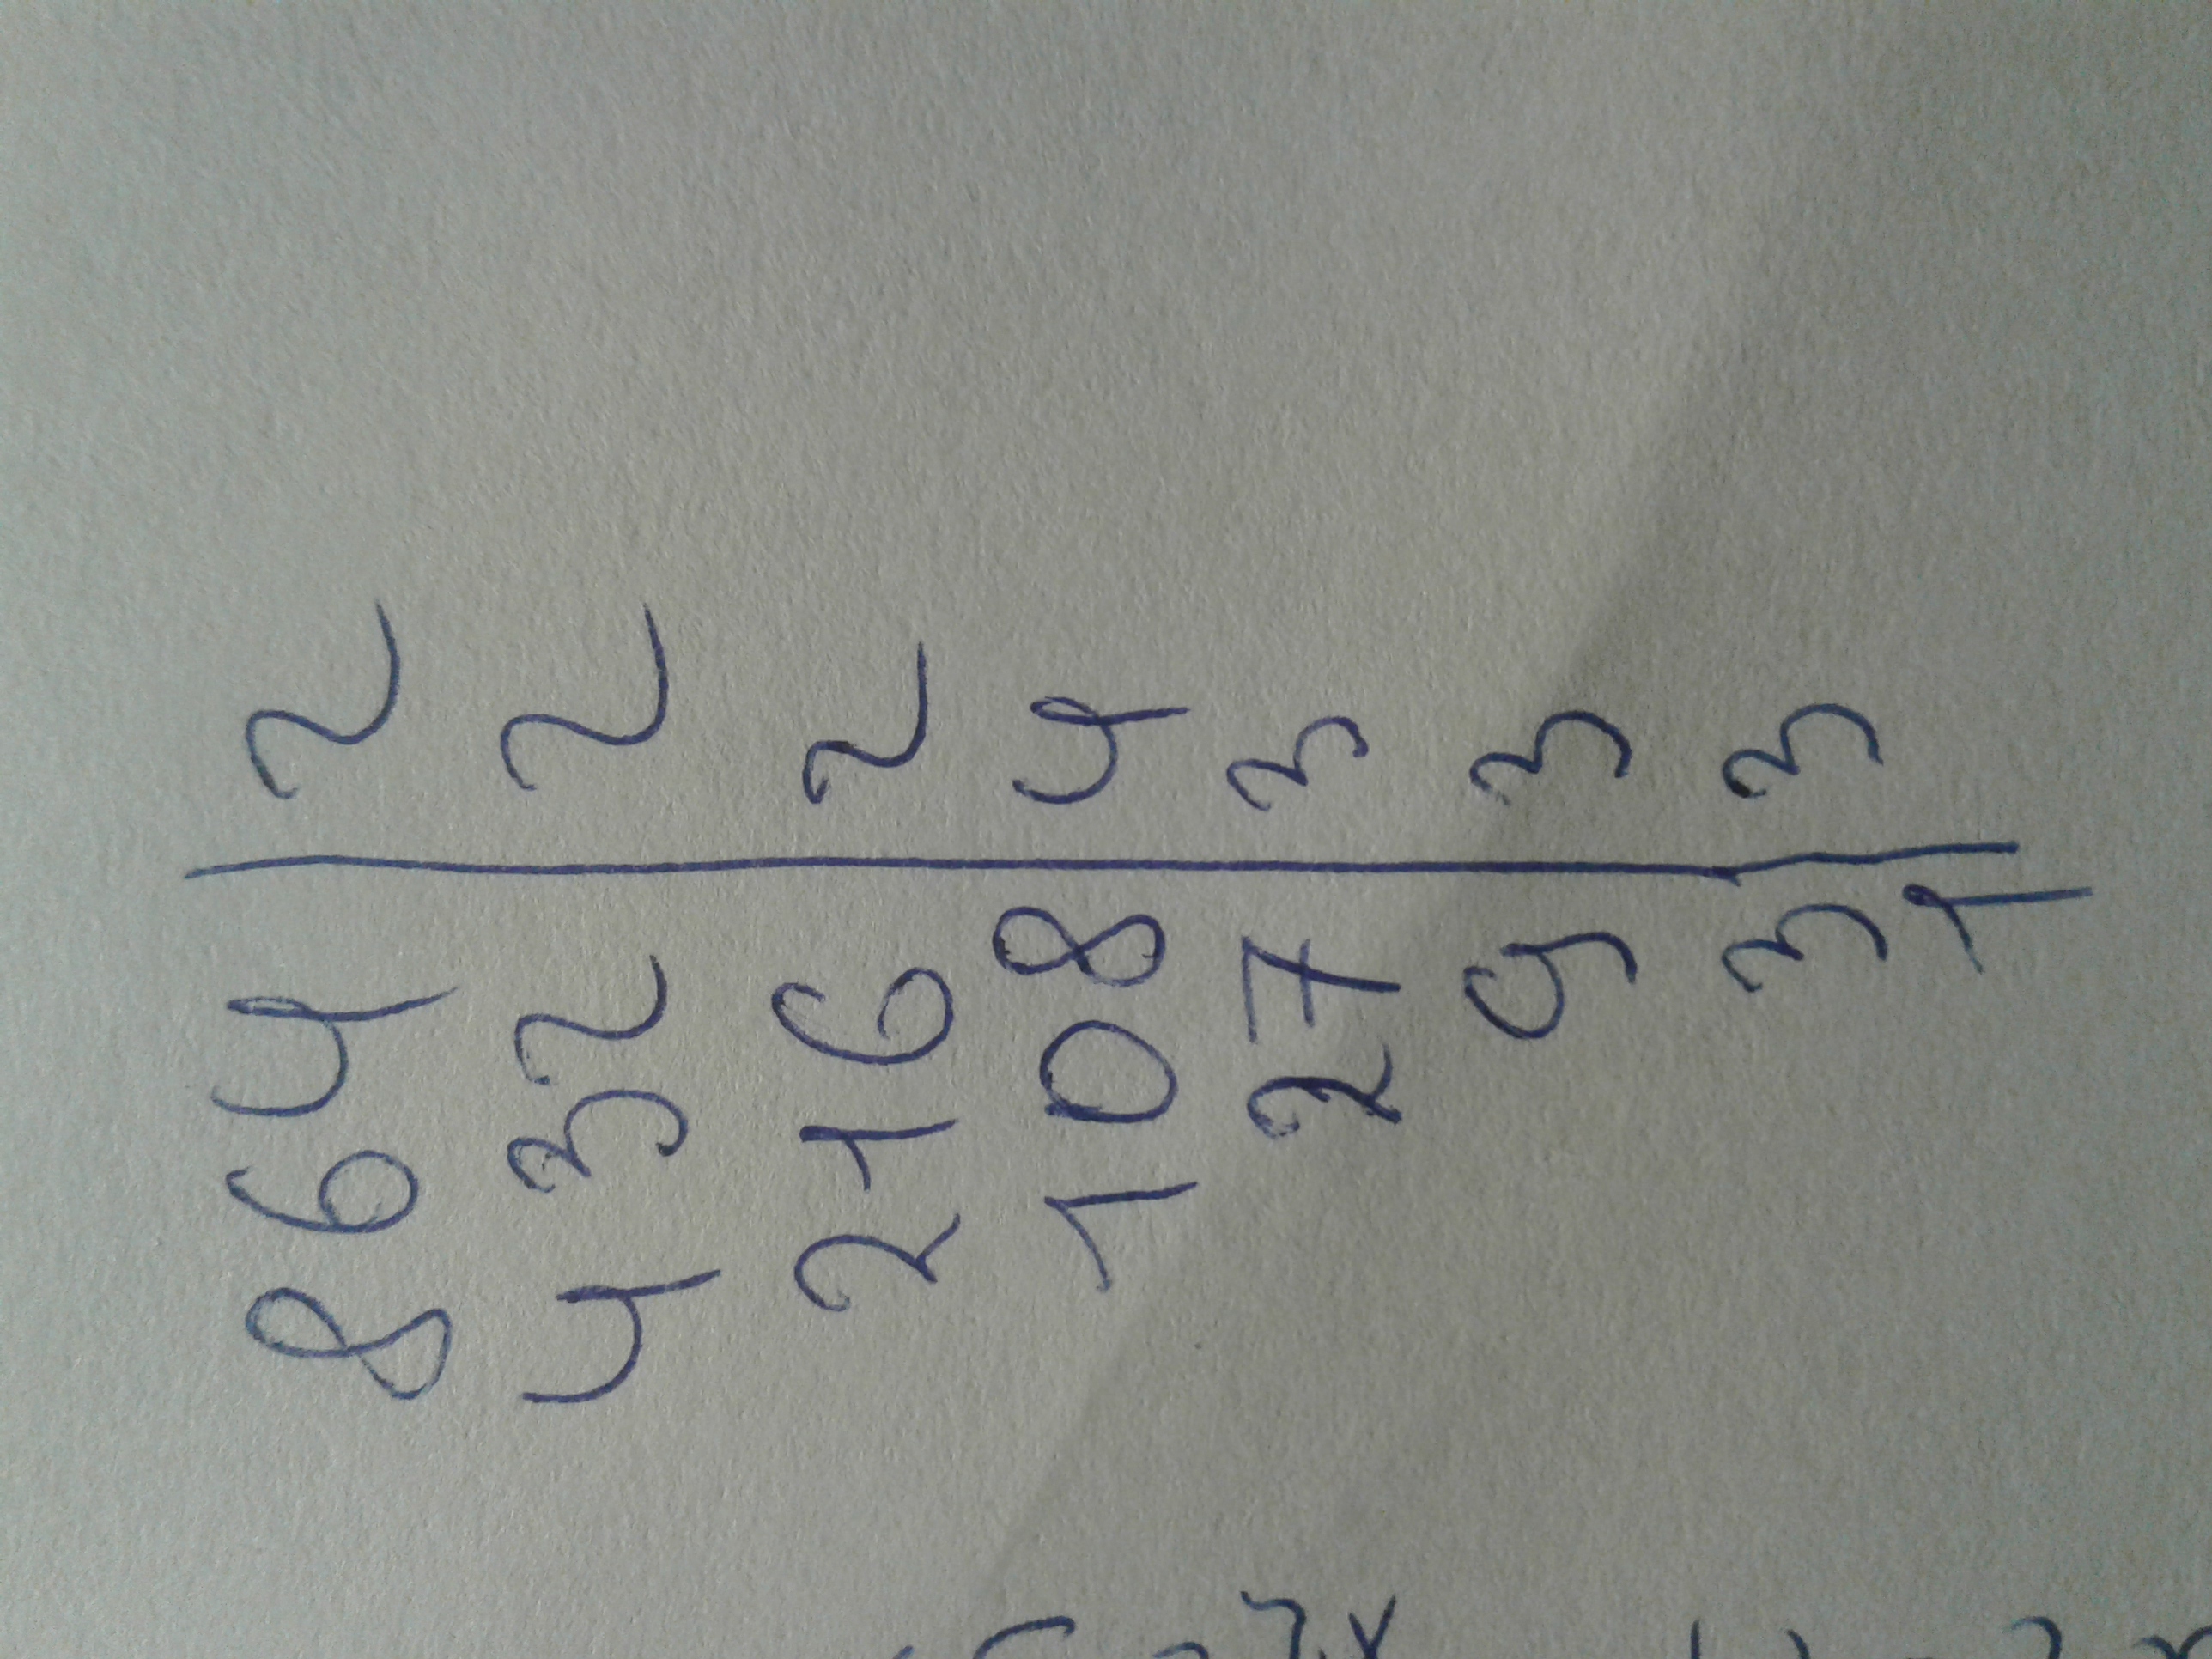 864 | 2
432 | 2
216 | 2
108 | 4
27 | 3
9 | 3
3 | 3
1